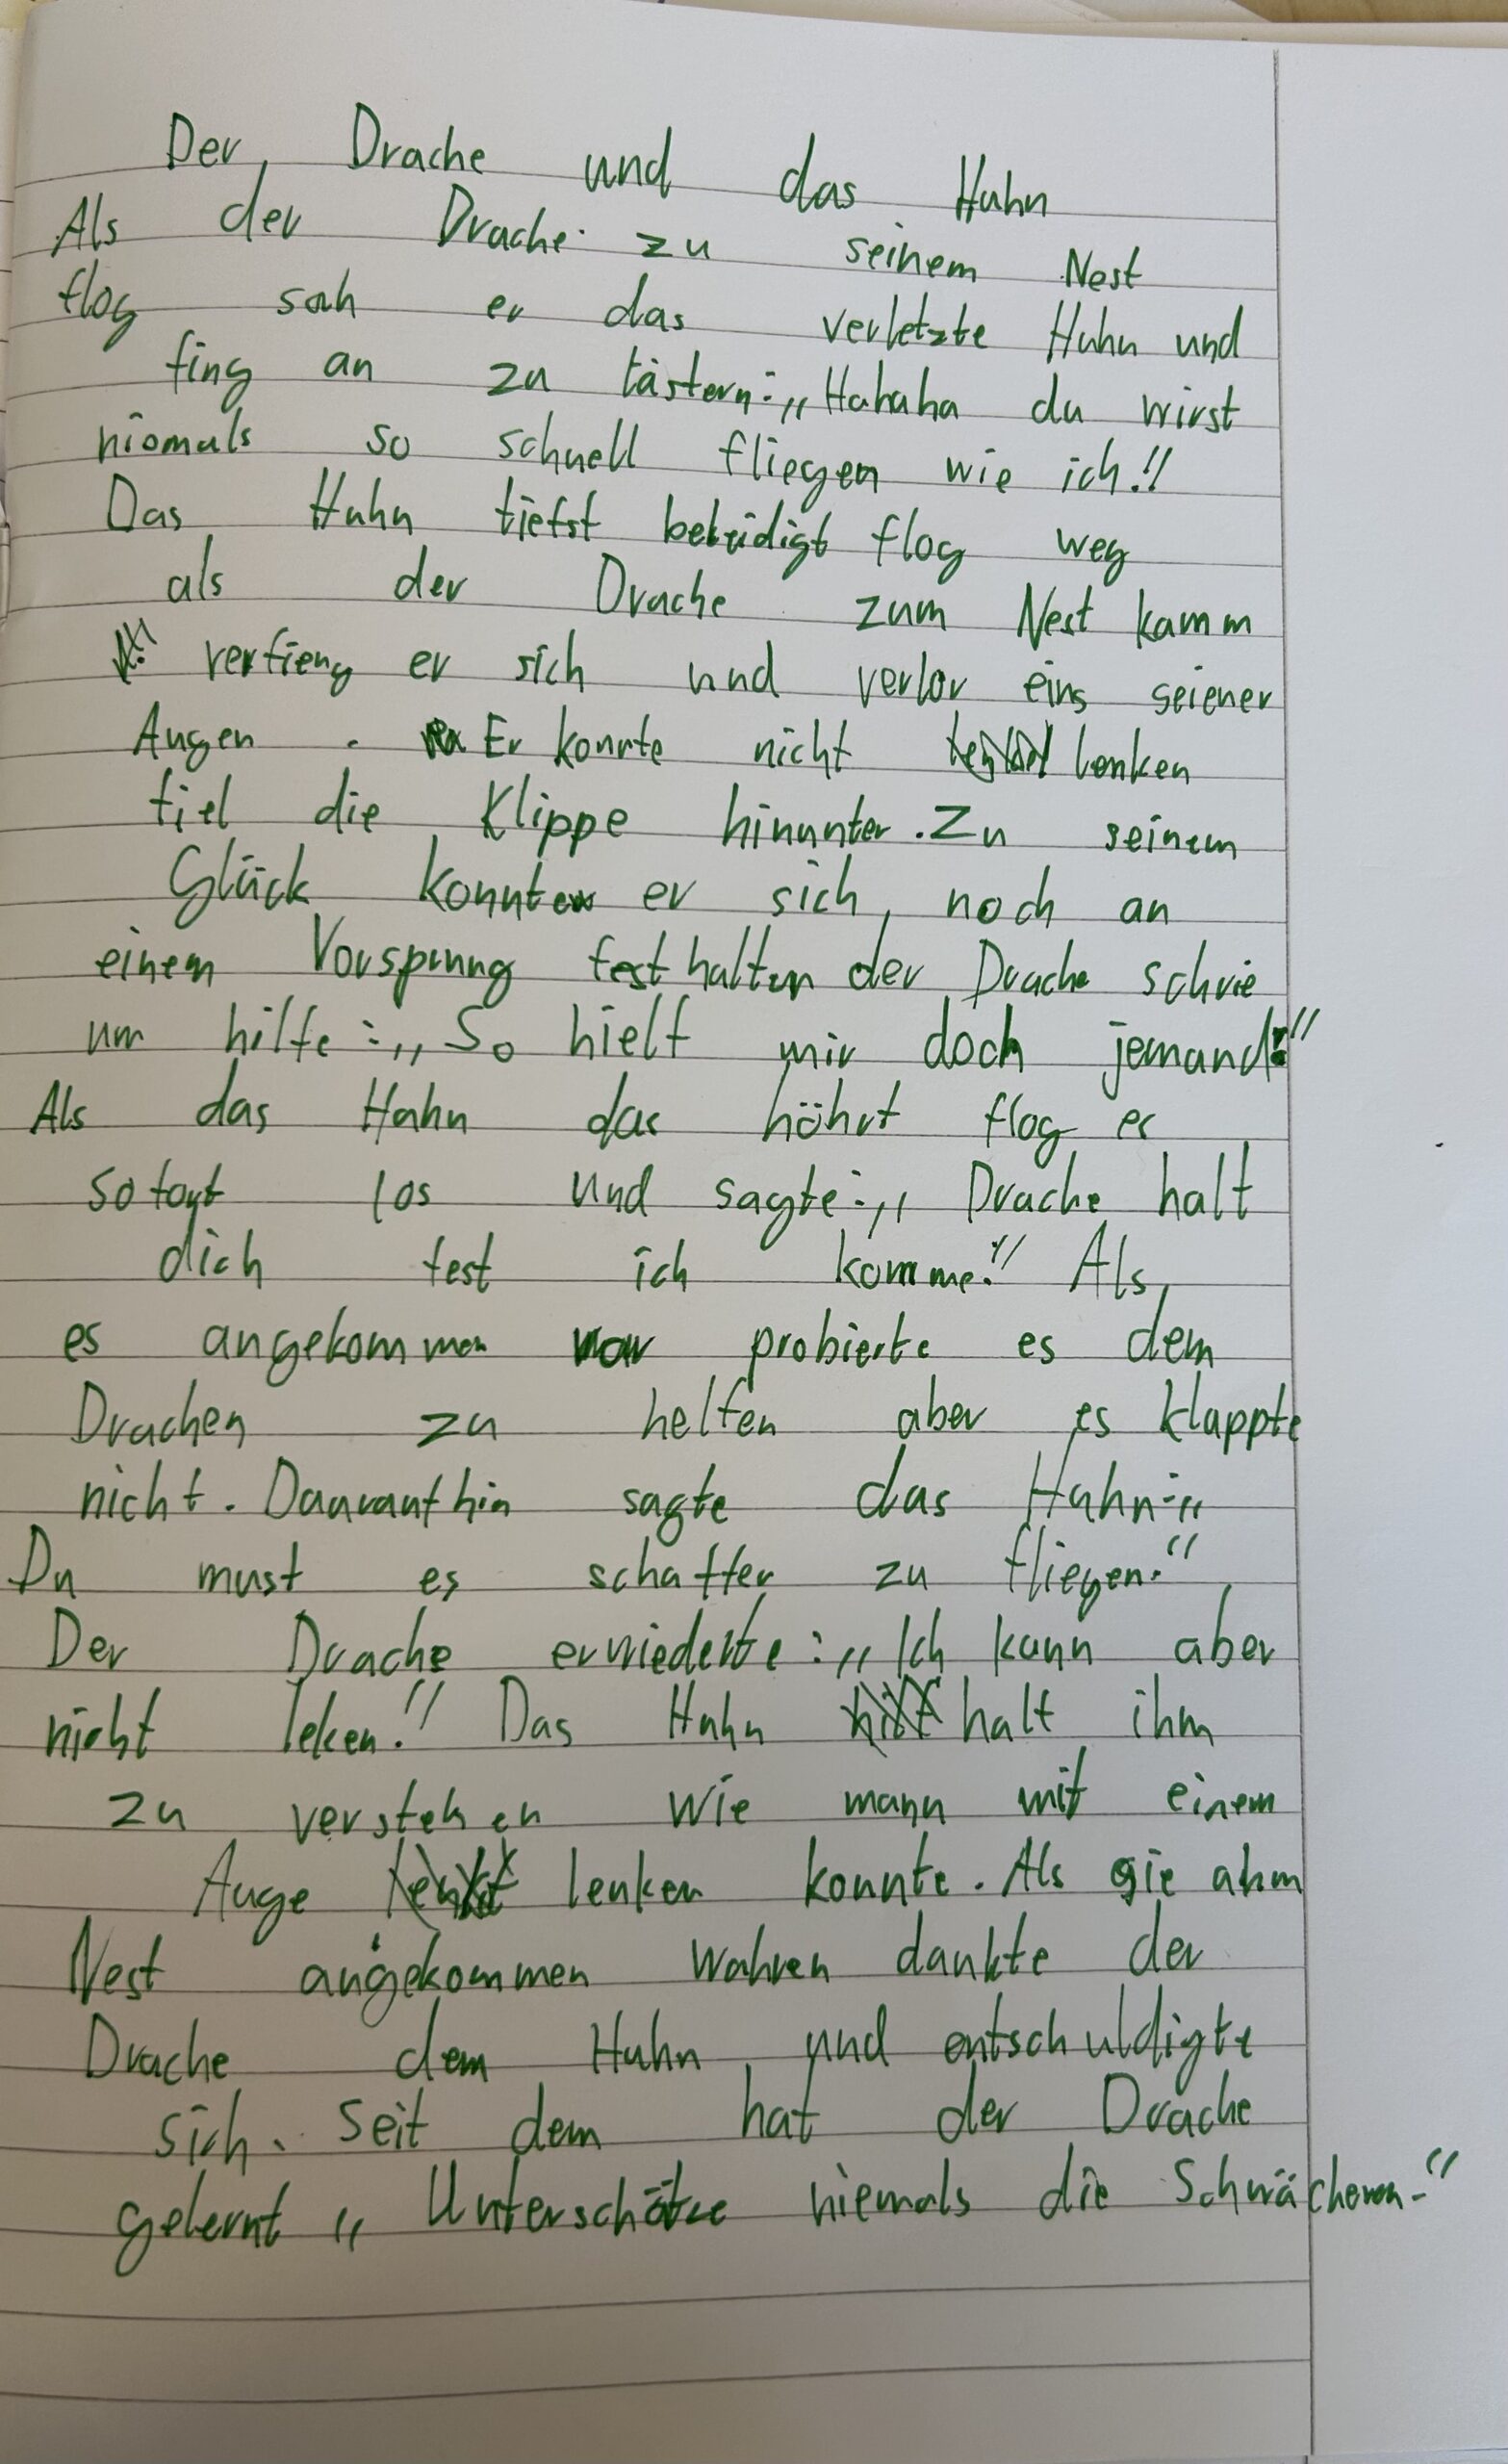 Der Drache und das Huhn
Als der Drache zu seinem Nest
flog sah er das verletzte Huhn und
fing an zu lästern: „Hahaha du wirst
niemals so schnell fliegen wie ich!"
Das Huhn tiefst beleidigt flog weg
als der Drache zum Nest kamm
verfieng er sich und verlor eins seiener
Augen. Er konnte nicht lenken
fiel die Klippe hinunter. Zu seinem
Glück konnte er sich, noch an
einem Vorsprung festhalten der Drache schrie
um hilfe: „So hielf mir doch jemand!"
Als das Huhn das höhrt flog es
sofort los und sagte: „Drache halt
dich fest ich komme!" Als
es angekommen war probierte es dem
Drachen zu helfen aber es klappte
nicht. Daaraufhin sagte das Huhn: „
Du must es schaffen zu fliegen."
Der Drache erwiederte: „Ich kann aber
nicht leken!" Das Huhn half ihm
zu verstehen wie mann mit einem
Auge lenken konnte. Als sie ahm
Nest angekommen wahren dankte der
Drache dem Huhn und entschuldigte
sich. Seit dem hat der Drache
gelernt „Unterschätze niemals die Schwächeren."